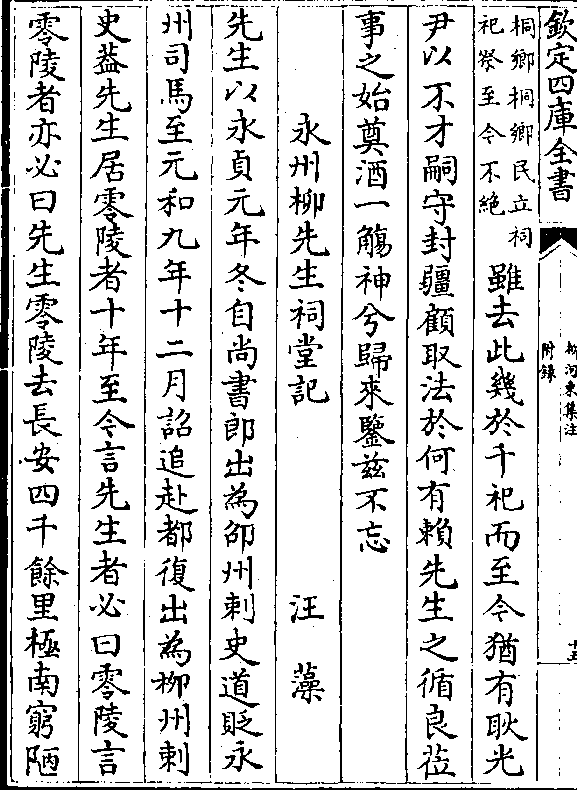 欽定四庫全書
柳河東集注
附錄
十五
桐鄉桐鄉民立祠
祀祭至今不絶
雖去此幾於千祀而至今猶有耿光
尹以不才嗣守封疆顧取法於何有賴先生之循良莅
事之始奠酒一觴神兮歸來鑒兹不忘
永州柳先生祠堂記 汪藻
先生以永貞元年冬自尚書郎出為邵州刺史道貶永
州司馬至元和九年十二月詔追赴都復出為柳州刺
史葢先生居零陵者十年至今言先生者必曰零陵言
零陵者亦必曰先生零陵去長安四千餘里極南窮陋